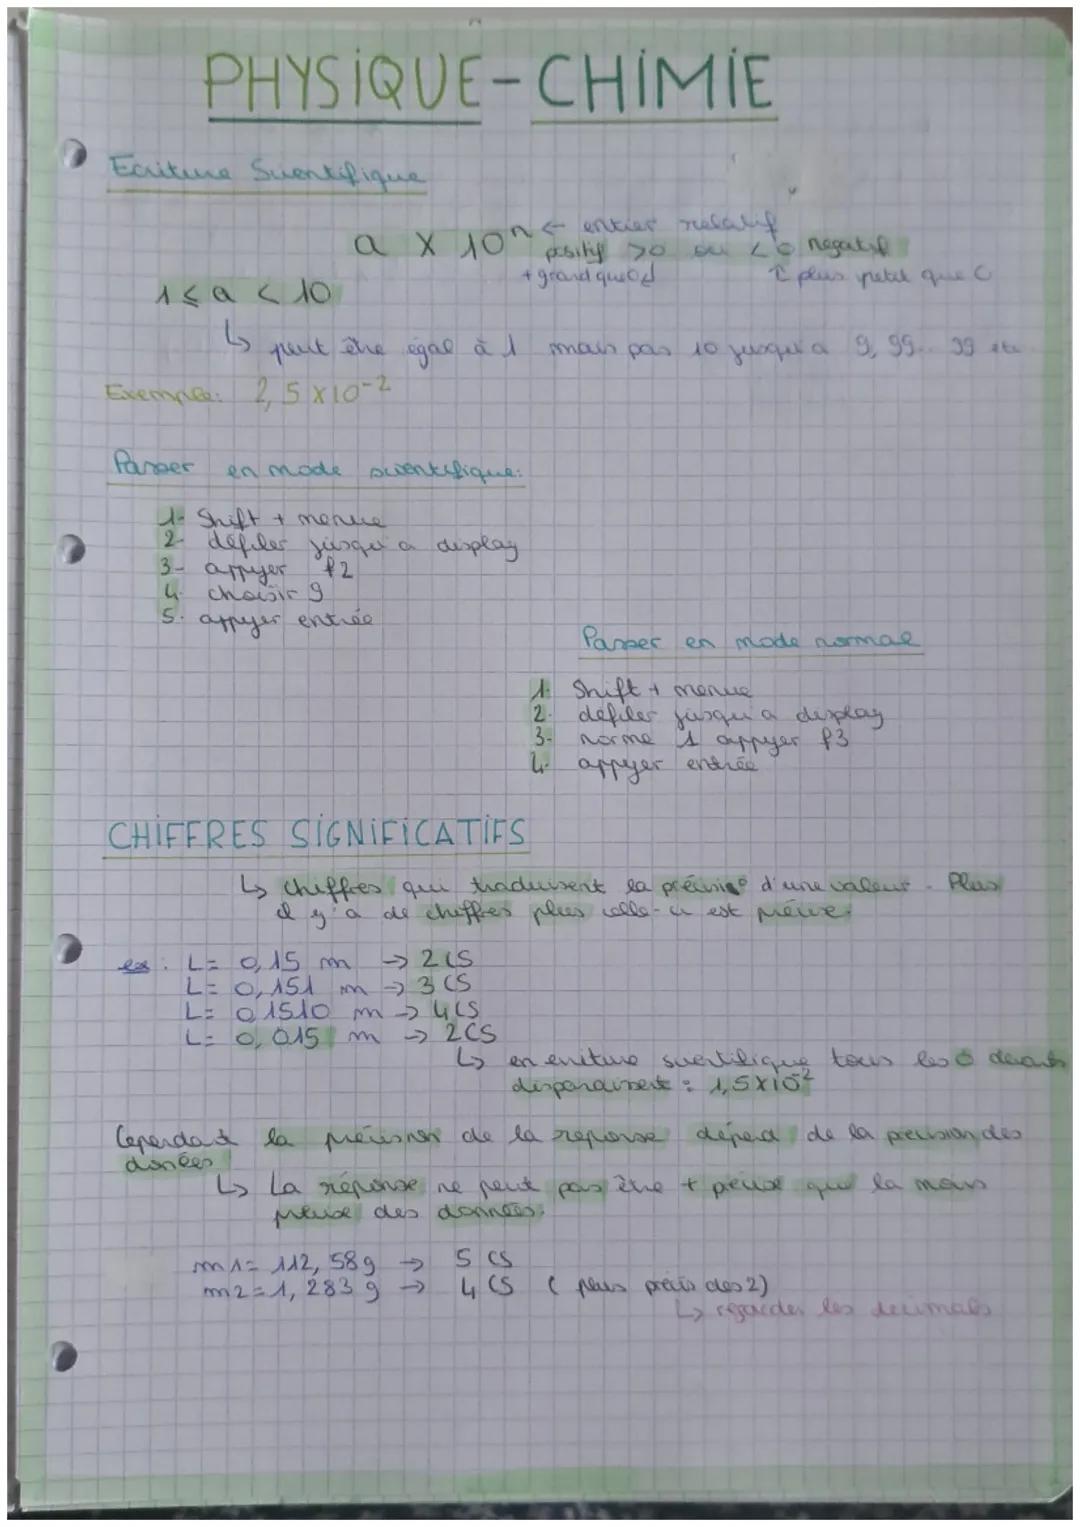 PHYSIQUE-CHIMIE
Ecriture Scientifique
a x 10ⁿ ← entier relatif
positif >0 ou <0 négatif
+ grand que 0
↑ plus petit que 0
1 ≤ a < 10
↳ peut être égal à 1 mais pas 10 jusqu'a 9,99...99 etc
Exemple: 2,5 x 10⁻²
Passer en mode scientifique:
1- Shift + menue
2- défiler jusqu'a display
3- appyer f2
4. choisir 9
5. appyer entrée
Passer en mode normal
1. Shift + menue
2. défiler jusqu'a display
3- norme 1 appyer f3
4- appyer entrée
CHIFFRES SIGNIFICATIFS
↳ chiffres qui traduisent la précisi° d'une valeur. Plus
il y'a de chiffres plus celle-ci est précise.
ex: L= 0,15 m → 2CS
L= 0,151 m → 3 CS
L= 0,1510 m → 4CS
L= 0,015 m → 2CS
↳ en ecriture scientifique tous les 0 devants
disparaissent : 1,5x10⁻²
Cependant la précision de la reponse dépend de la precision des
données
↳ La réponse ne peut pas être + précise que la moins
précise des données.
m1= 112,58g → 5 CS
m2=1,283 g → 4 CS ( plus précis des 2)
↳ regarder les decimals